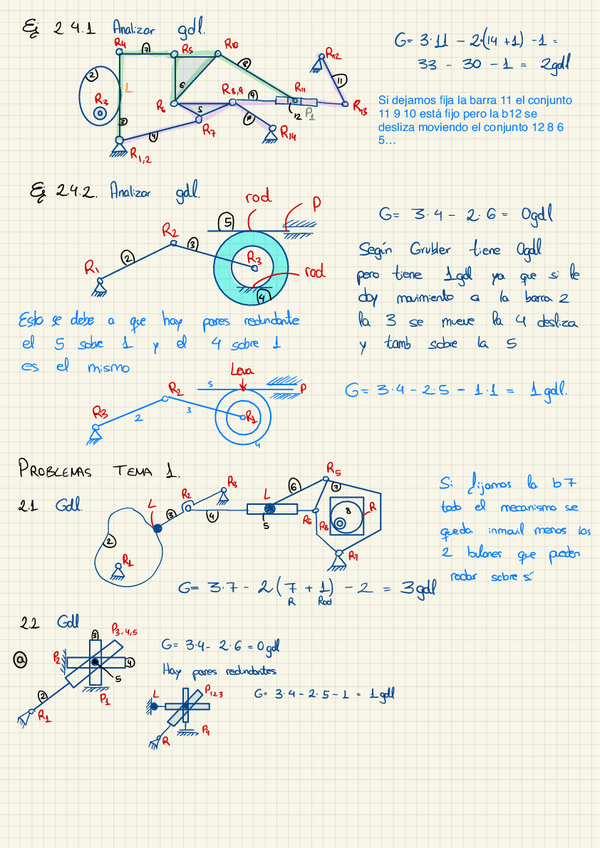 Ej 2.4.1 Analizar gdl.
G= 3·11 – 2·(14 +1) –1 =
33 – 30 – 1 = 2gdl
Si dejamos fija la barra 11 el conjunto
11 9 10 está fijo pero la b12 se
desliza moviendo el conjunto 12 8 6
5...
R4 7 R5 R10 R12
2 L 8 11
R3 6 R11
R6 R8,9 9 12 P1 R13
3 5 R7
4 R14
R1,2
Ej 2.4.2. Analizar gdl.
5 rod P
R2 3
2 R3
R1 rod
4
G= 3·4 – 2·6 = 0gdl
Según Grubler tiene 0gdl
pero tiene 1gdl ya que si le
doy movimiento a la barra 2
la 3 se mueve la 4 desliza
y tamb sobre la 5
Esto se debe a que hay pares redundante
el 5 sobre 1 y el 4 sobre 1
es el mismo
Leva
5 P
R2 3
R3 2 R1
4
G= 3·4 – 2·5 – 1·1 = 1gdl.
PROBLEMAS TEMA 1.
2.1 Gdl.
L 3 R2 R3 4 L 6 R5 7
2 5 R6 R8 8 R
R1 R7
G= 3·7 – 2(7 + 1) – 2 = 3gdl
R Rod
Si fijamos la b7
todo el mecanismo se
queda inmovil menos los
2 bulones que pueden
rodar sobre sí
2.2 Gdl
a
3 P3,4,5
P2 4
5
2 P1
R1
G= 3·4 – 2·6 = 0gdl
Hay pares redundantes
L P1,2,3
R P4
G= 3·4 – 2·5 – 1 = 1gdl